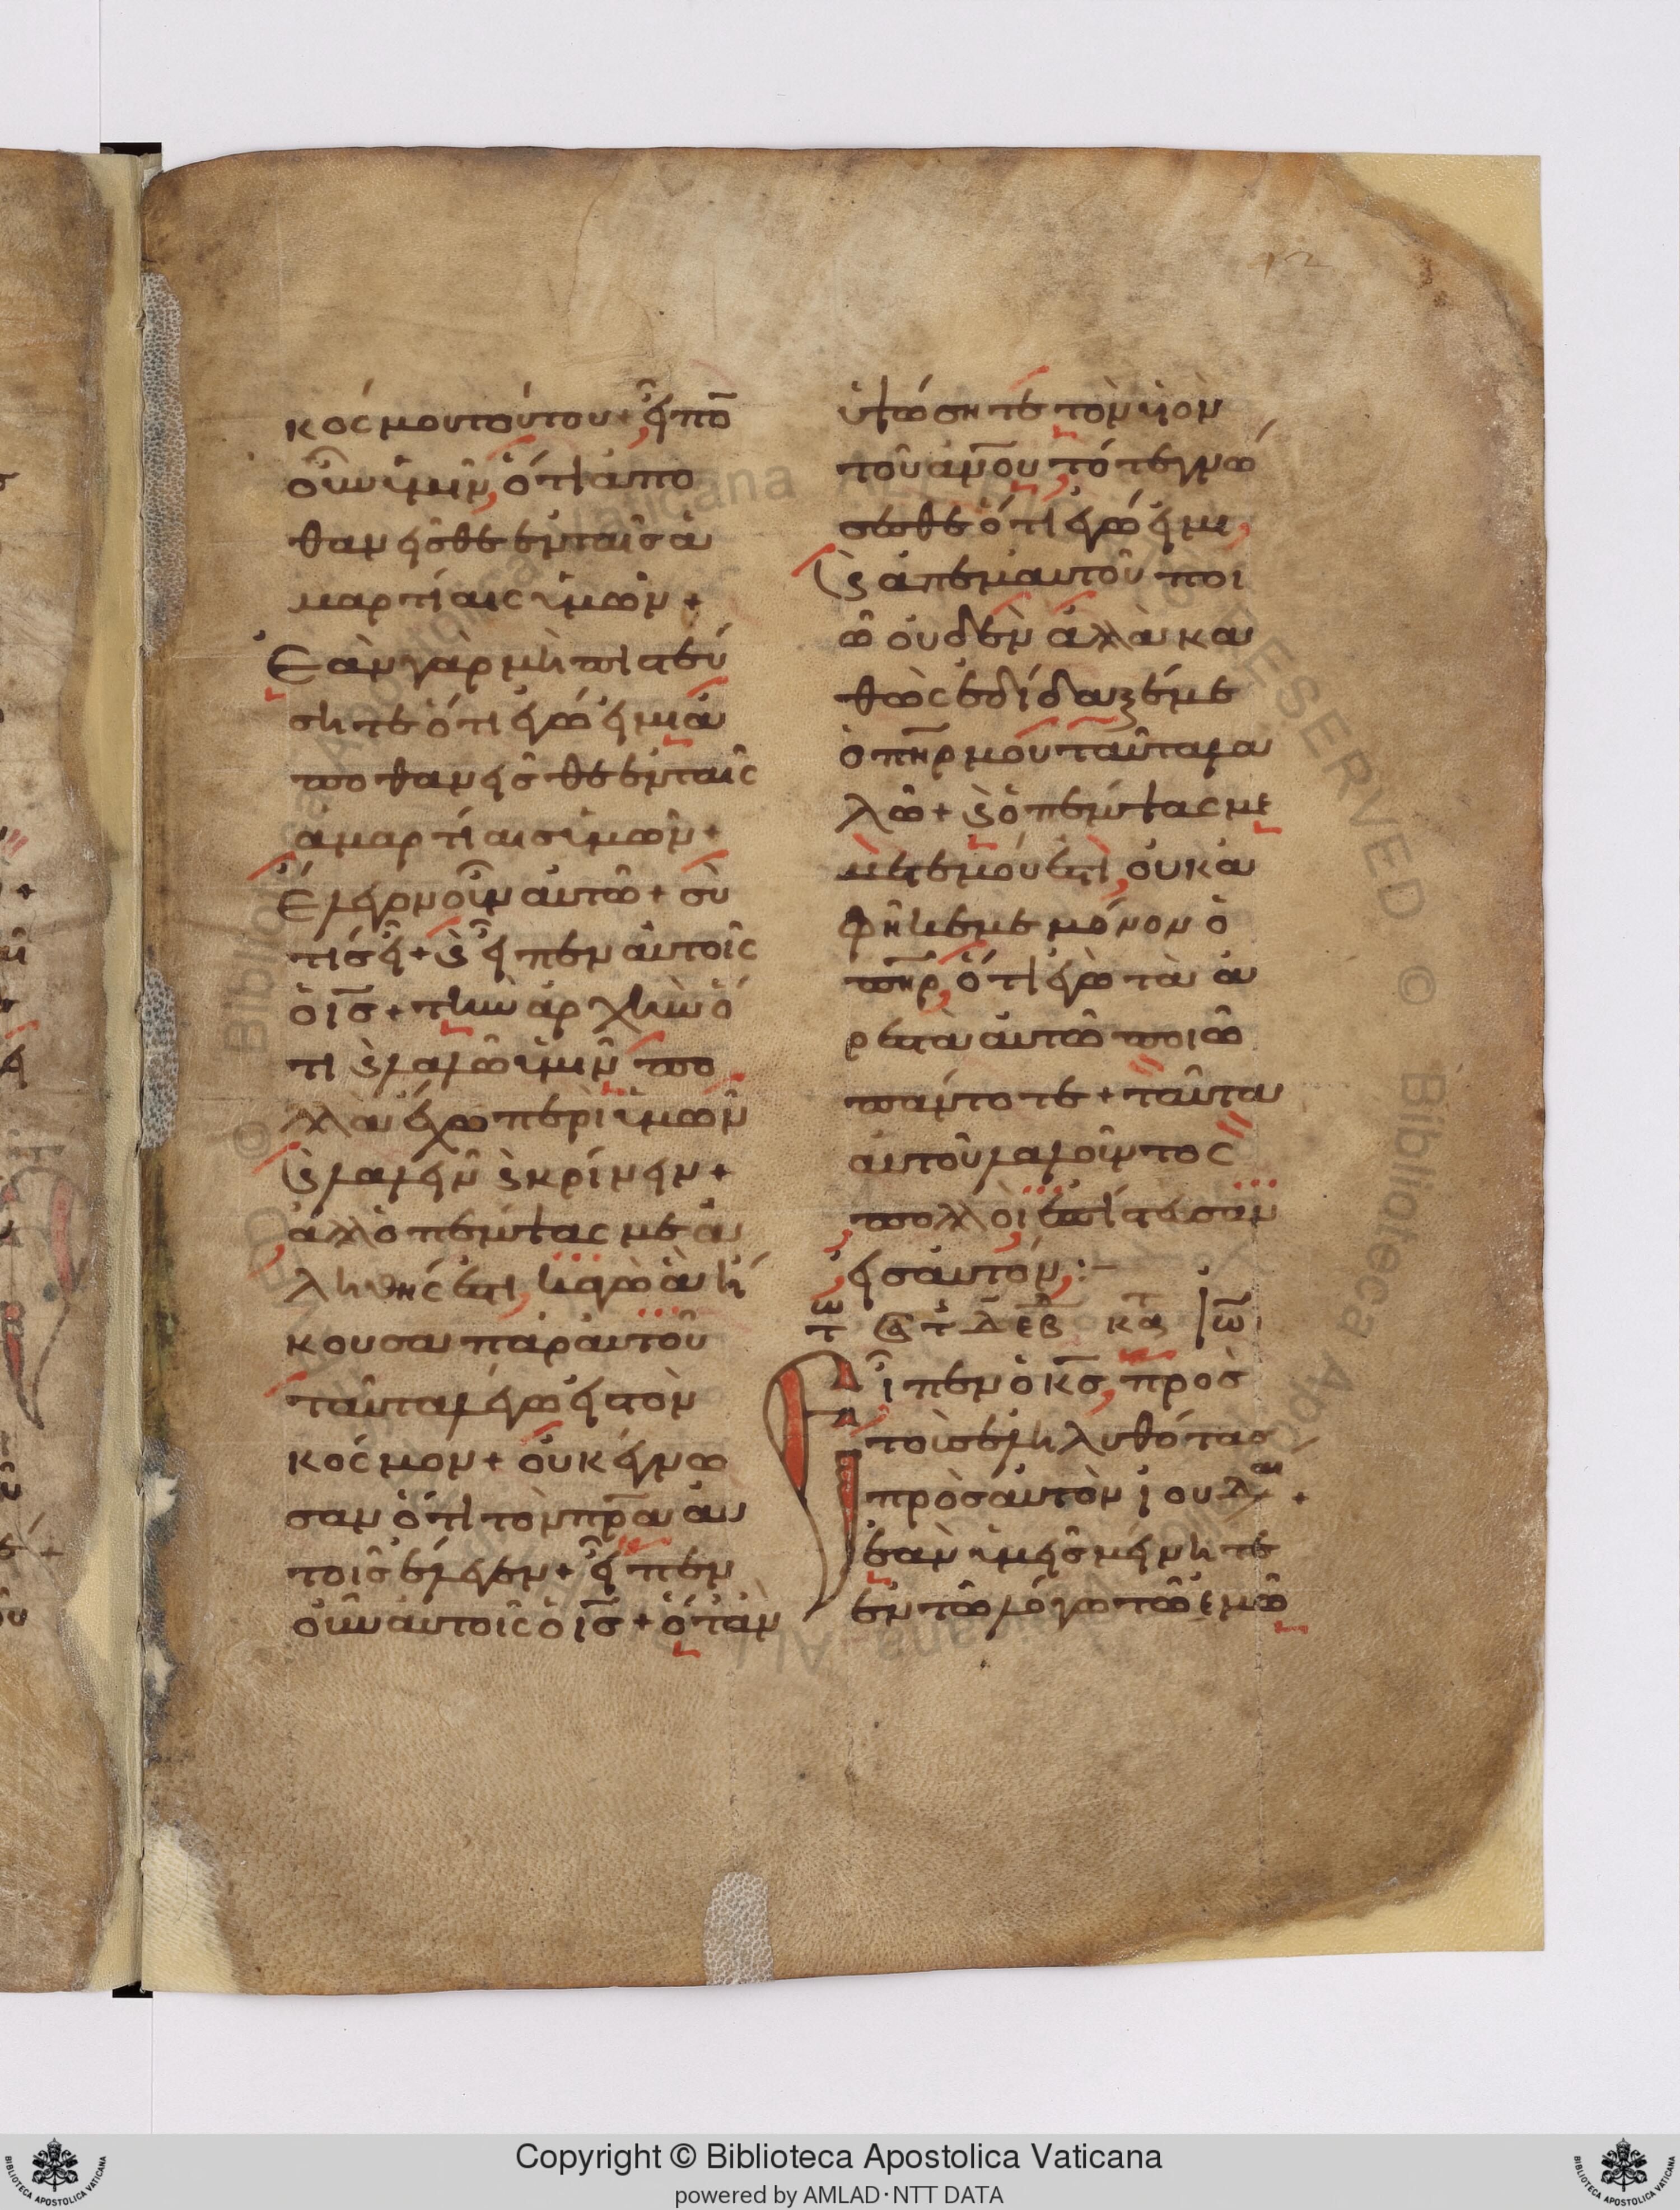 κόσμου τούτου + εἶπο̅
οὖν ὑμῖν, ὅτι ἀπο
θανεῖσθε ἐν ταῖς ἁ
μαρτίαις ὑμῶν +
Ἐὰν γὰρ μὴ πιστεύ
σητε ὅτι ἐγώ εἰμι ἀ
ποθανεῖσθε ἐν ταῖς
ἁμαρτίαις ὑμῶν +
Ἔλεγον οὖν αὐτῶ + σὺ
τίς εἶ + ϗ εἶπεν αὐτοῖς
ὁ ι̅ς̅ + τὴν ἀρχὴν ὅ
τι ϗ λαλῶ ὑμῖν πο
λλὰ ἔχω περὶ ὑμῶν
ϗ λαλεῖν ϗ κρίνειν +
ἀλλ ὁ πέμψας με ἀ
ληθής ἐστι, κἀγὼ ἃ ἤ
κουσα παρ αὐτοῦ
ταῦτα λέγω εἰς τὸν
κόσμον + οὐκ ἔγνω
σαν ὅτι τὸν π̅ρ̅α̅ αὐ
τοῖς ἔλεγεν + εἶπεν
οὖν αὐτοῖς ὁ ι̅ς̅ + ὅταν
ὑψώσητε τὸν υἱὸν
τοῦ α̅ν̅ο̅υ̅ τότε γνώ
σωθε ὅτι ἐγώ εἰμι,
ϗ ἀπ ἐμαυτοῦ ποι
ῶ οὐδὲν ἀλλὰ κα
θὼς ἐδίδαξέ με
ὁ π̅η̅ρ̅ μου ταῦτα λα
λῶ + ϗ ὁ πέμψας με
μετ ἐμοῦ ἐστὶ, οὐκ ἀ
φῆκε με μόνον ὁ
π̅η̅ρ̅, ὅτι ἐγὼ τὰ ἀ
ρεστὰ αὐτῶ ποιῶ
πάντοτε + ταῦτα
αὐτοῦ λαλοῦντος
πολλοὶ ἐπίστευσαν
εἰς αὐτόν :-
Εἶπεν ὁ κ̅ς̅, πρὸς
τοὺς ἐληλυθότας
πρὸς αὐτὸν ἰουδαι +
ἐὰν ὑμεῖς μείνητε
ἐν τῶ λόγω τῶ ἐμῶ
Copyright © Biblioteca Apostolica Vaticana
powered by AMLAD·NTT DATA